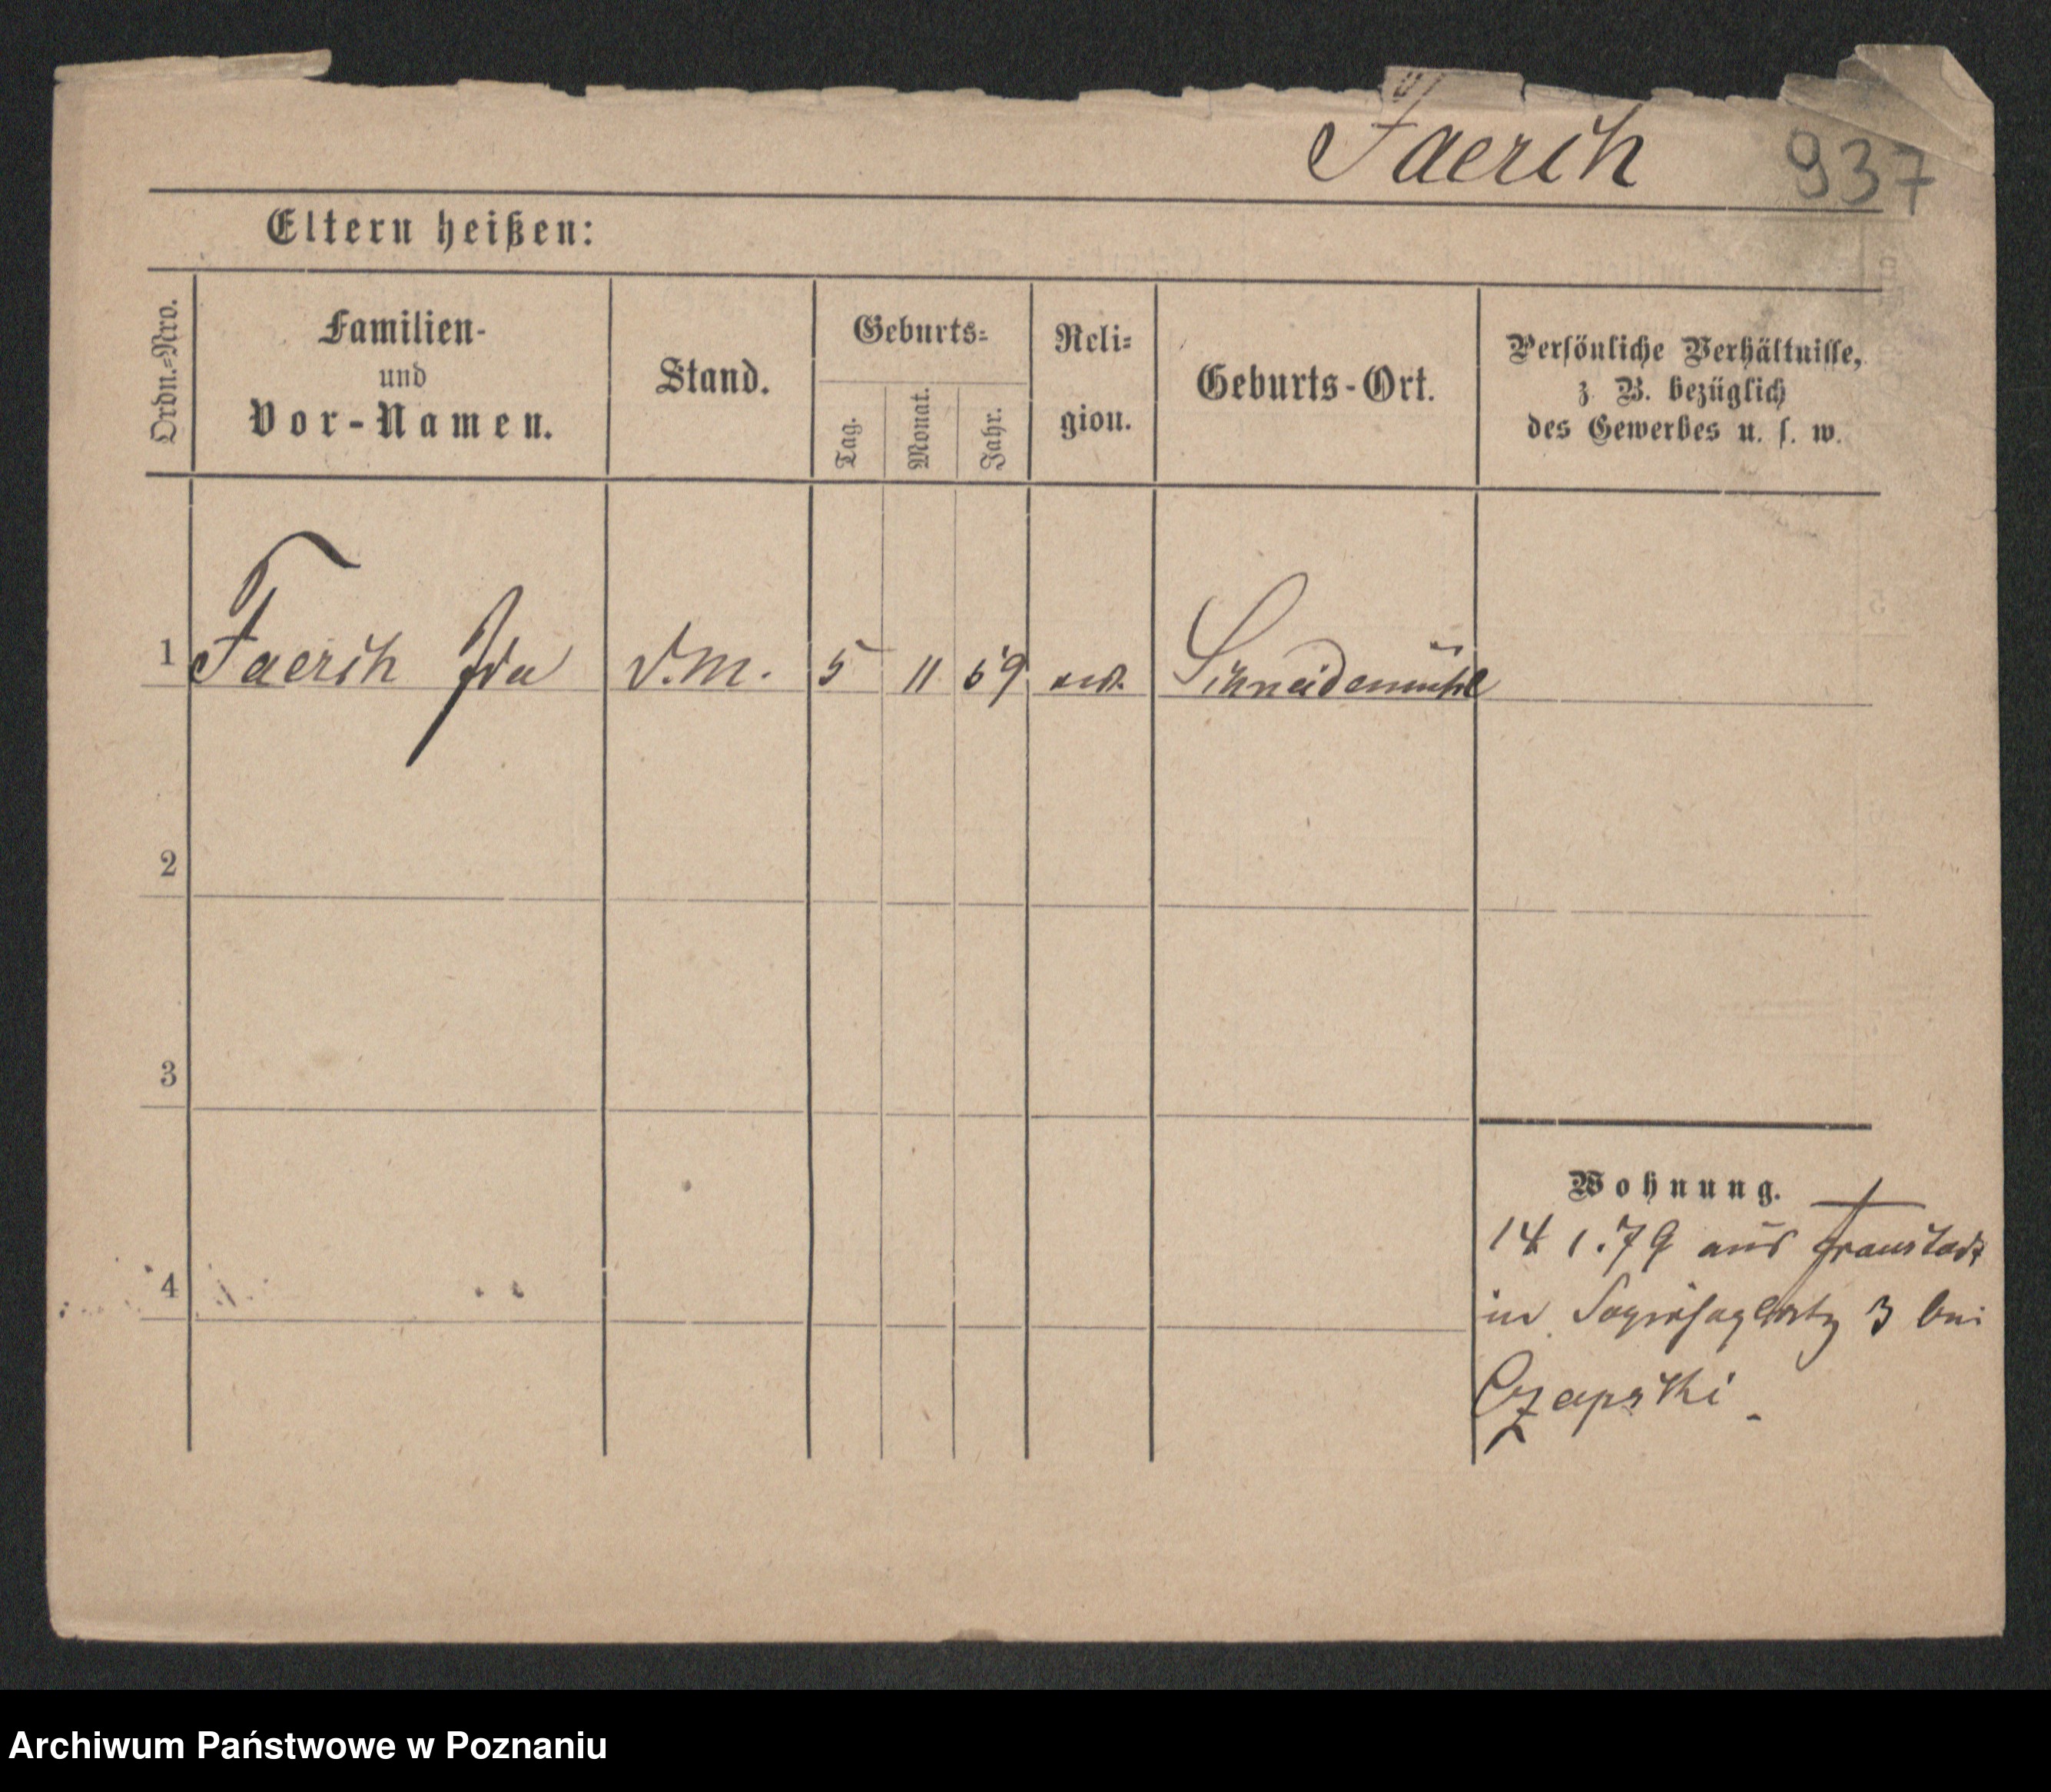 Faerch 937
Eltern heißen:
Ordn.-Nro.
Familien-
und
Vor-Namen.
Stand.
Geburts-
Tag.
Monat.
Jahr.
Reli-
gion.
Geburts-Ort.
Persönliche Verhältnisse,
z. B. bezüglich
des Gewerbes u. s. w.
1 Faerch Ida D.M. 5 11 59 Schneidemühl
2
3
4
Wohnung.
14 1.79 aus Fraustadt
in 3 bei
Czapski
Archiwum Państwowe w Poznaniu